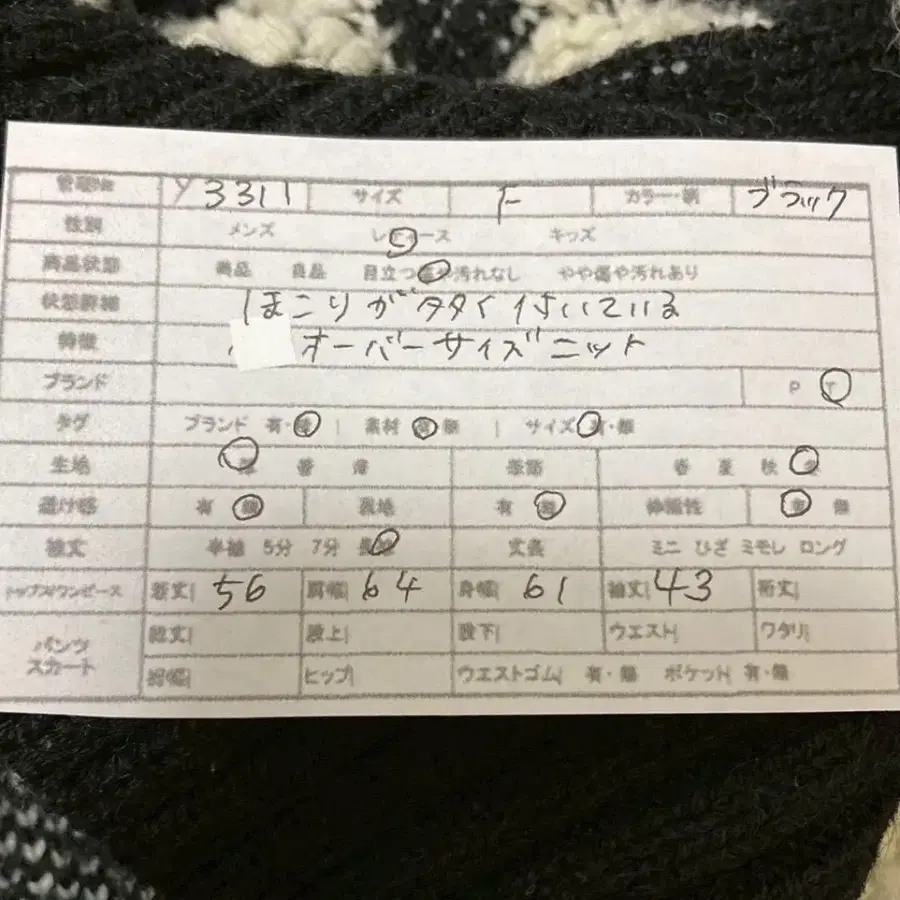 管理No Y3311 サイズ F カラー・柄 ブラック
性別 メンズ レディース キッズ
商品状態 美品 良品 目立つ傷や汚れなし やや傷や汚れあり
状態詳細 ほこりが多く付いている
特徴 オーバーサイズニット
ブランド P T
タグ ブランド 有・無 | 素材 有・無 | サイズ 有・無
生地 厚 普 薄 季節 春 夏 秋 冬
透け感 有 無 裏地 有 無 伸縮性 有 無
袖丈 半袖 5分 7分 長袖 丈長 ミニ ひざ ミモレ ロング
トップス/ワンピース 着丈| 56 肩幅| 64 身幅| 61 袖丈| 43 裄丈|
パンツ スカート 総丈| 股上| 股下| ウエスト| ワタリ|
裾幅| ヒップ| ウエストゴム| 有・無 ポケット| 有・無